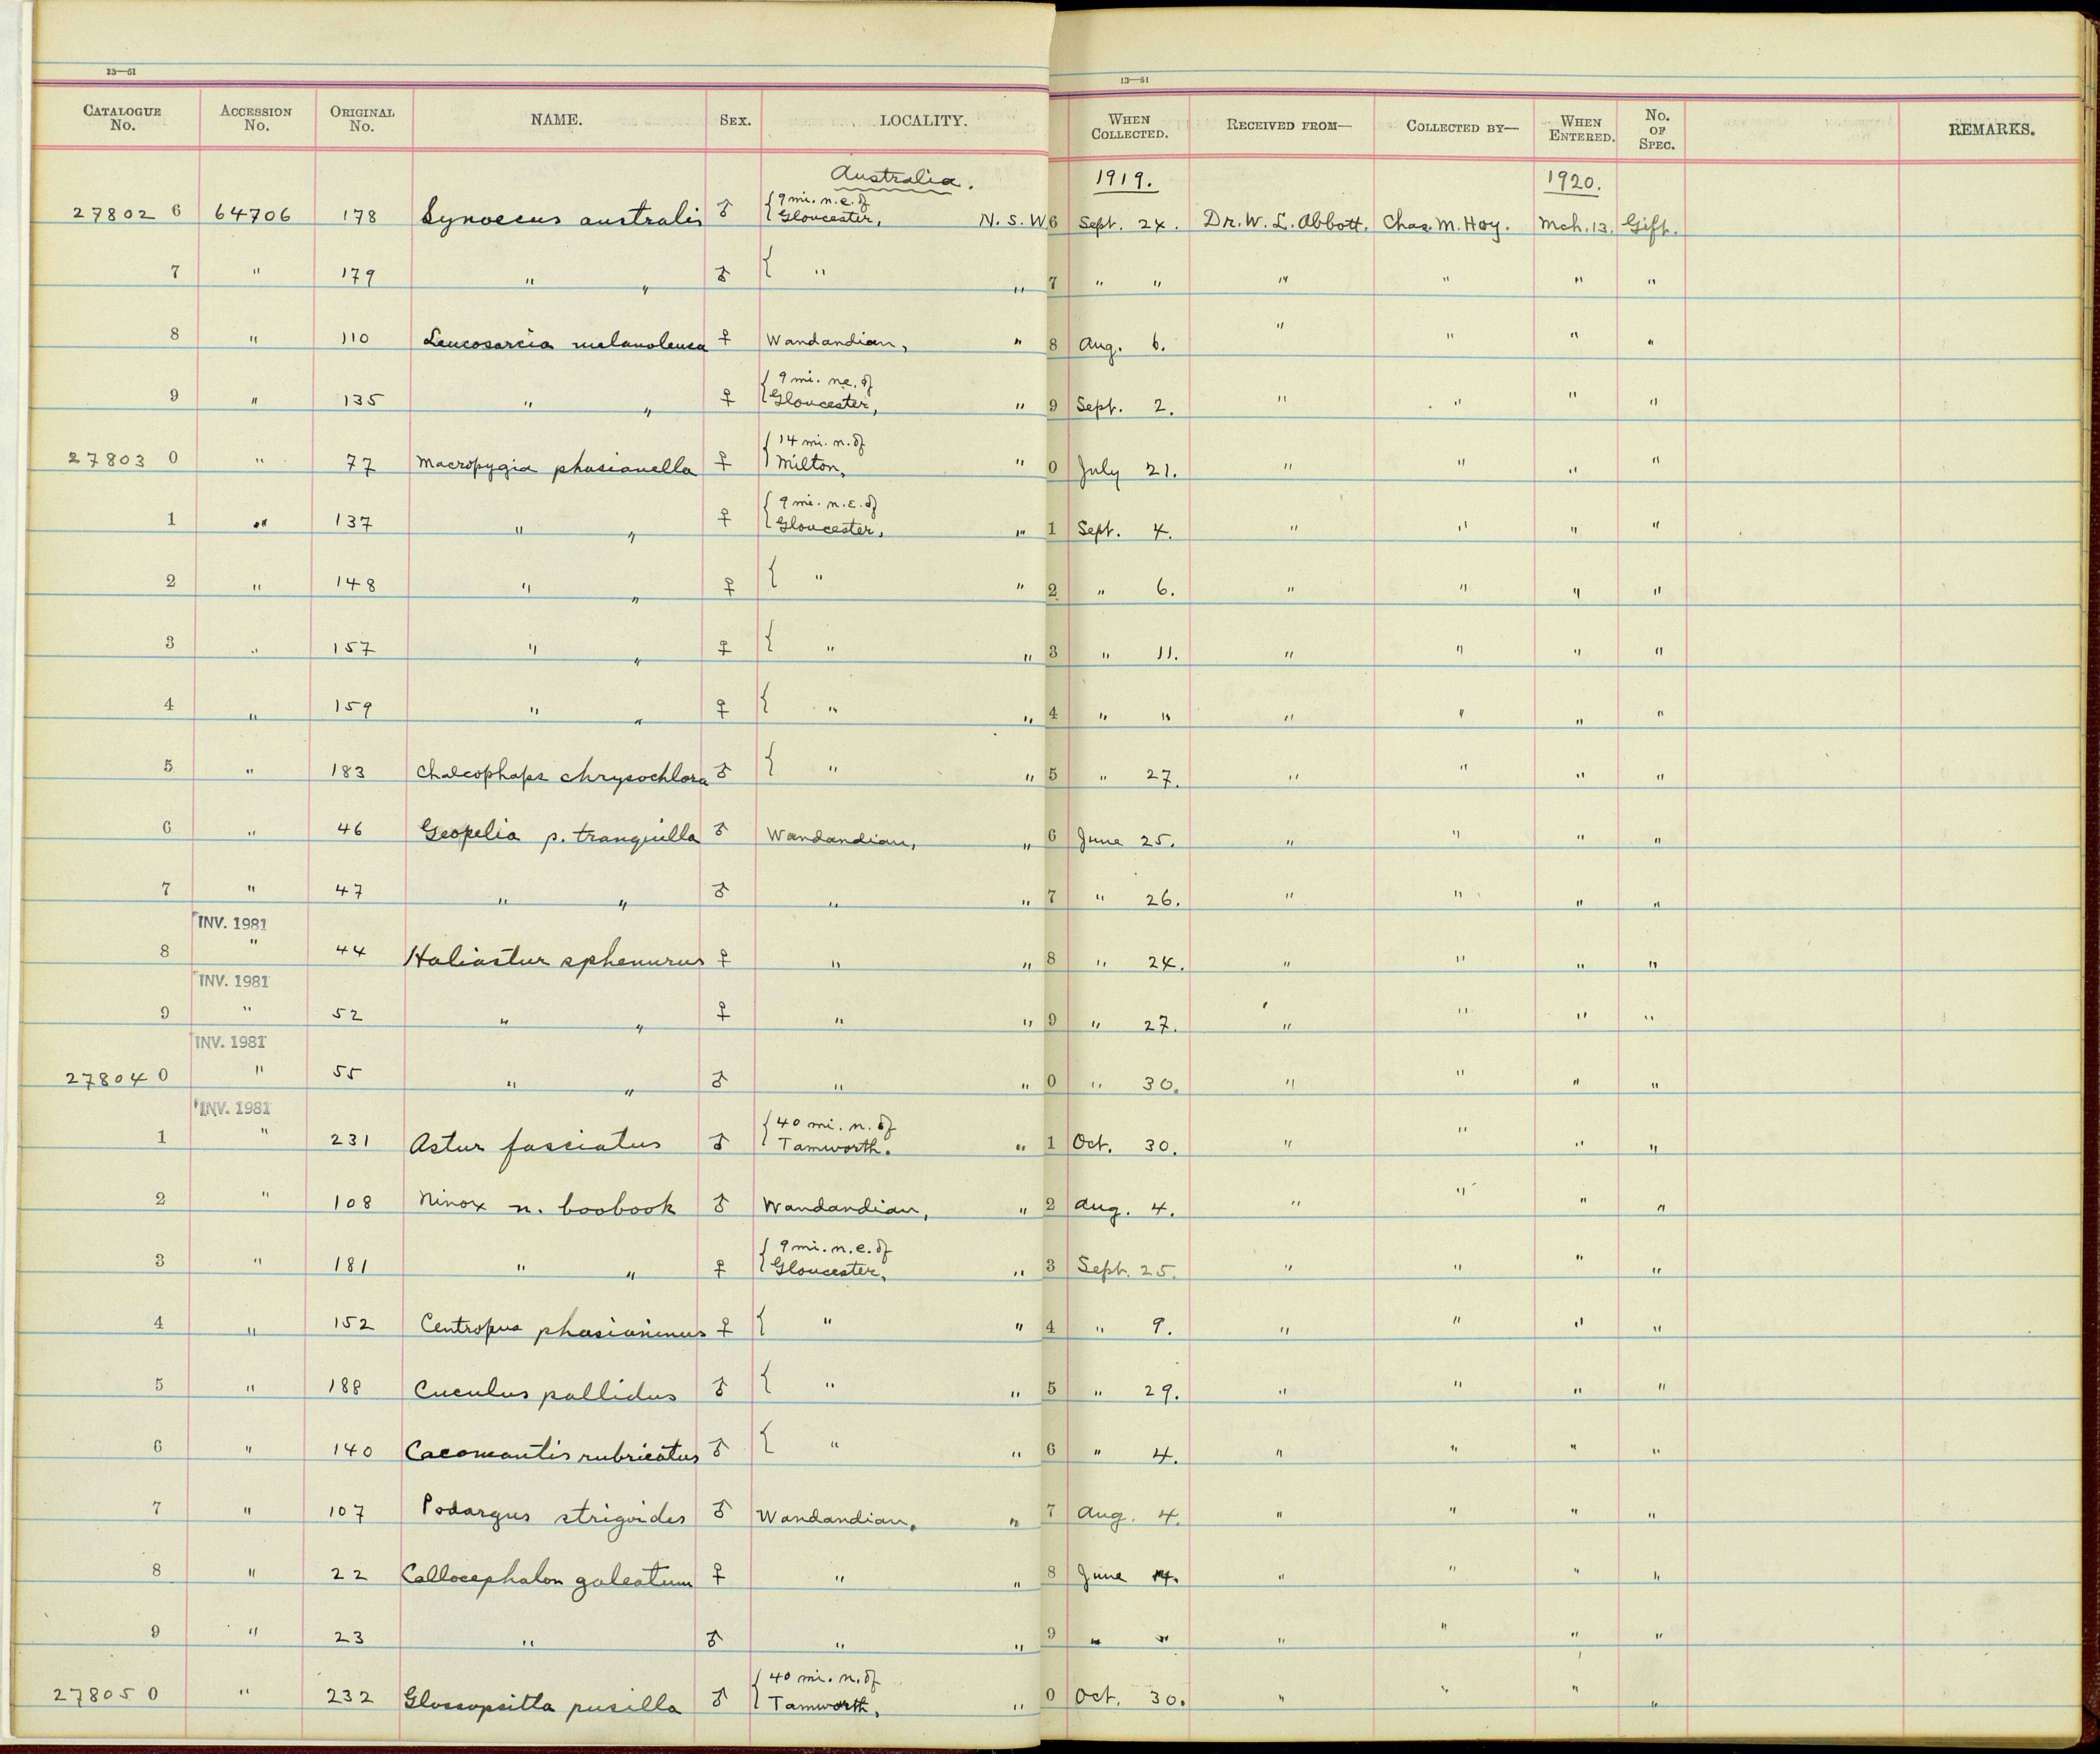 13—51
13—51
CATALOGUE No. ACCESSION No. ORIGINAL No. NAME. SEX. LOCALITY. WHEN COLLECTED. RECEIVED FROM— COLLECTED BY— WHEN ENTERED. No. OF SPEC. REMARKS.
Australia. 1919. 1920.
27802 6 64706 178 Synoecus australis ♂ { 9 mi. n.e. of Gloucester, N.S.W. 6 Sept. 24. Dr. W. L. Abbott. Chas. M. Hoy. Mch. 13. Gift.
7 " 179 " " ♂ { " " 7 " " " " " "
8 " 110 Leucosarcia melanoleuca ♀ Wandandian, " 8 Aug. 6. " " " "
9 " 135 " " ♀ { 9 mi. n.e. of Gloucester, " 9 Sept. 2. " " " "
27803 0 " 77 Macropygia phasianella ♀ { 14 mi. n. of Milton, " 0 July 21. " " " "
1 " 137 " " ♀ { 9 mi. n.e. of Gloucester, " 1 Sept. 4. " " " "
2 " 148 " " ♀ { " " 2 " 6. " " " "
3 " 157 " " ♀ { " " 3 " 11. " " " "
4 " 159 " " ♀ { " " 4 " " " " " "
5 " 183 Chalcophaps chrysochlora ♂ { " " 5 " 27. " " " "
6 " 46 Geopelia p. tranquilla ♂ Wandandian, " 6 June 25. " " " "
7 " 47 " " ♂ " " 7 " 26. " " " "
INV. 1981
8 " 44 Haliastur sphenurus ♀ " " 8 " 24. " " " "
INV. 1981
9 " 52 " " ♀ " " 9 " 27. " " " "
INV. 1981
27804 0 " 55 " " ♂ " " 0 " 30. " " " "
INV. 1981
1 " 231 Astur fasciatus ♂ { 40 mi. n. of Tamworth. " 1 Oct. 30. " " " "
2 " 108 Ninox n. boobook ♂ Wandandian, " 2 Aug. 4. " " " "
3 " 181 " " ♀ { 9 mi. n.e. of Gloucester, " 3 Sept. 25. " " " "
4 " 152 Centropus phasianinus ♀ { " " 4 " 9. " " " "
5 " 188 Cuculus pallidus ♂ { " " 5 " 29. " " " "
6 " 140 Cacomantis rubricatus ♂ { " " 6 " 4. " " " "
7 " 107 Podargus strigoides ♂ Wandandian, " 7 Aug. 4. " " " "
8 " 22 Callocephalon galeatum ♀ " " 8 June " " " "
9 " 23 " ♂ " " 9 " " " " " "
27805 0 " 232 Glossopsitta pusilla ♂ { 40 mi. n. of Tamworth, " 0 Oct. 30. " " " "